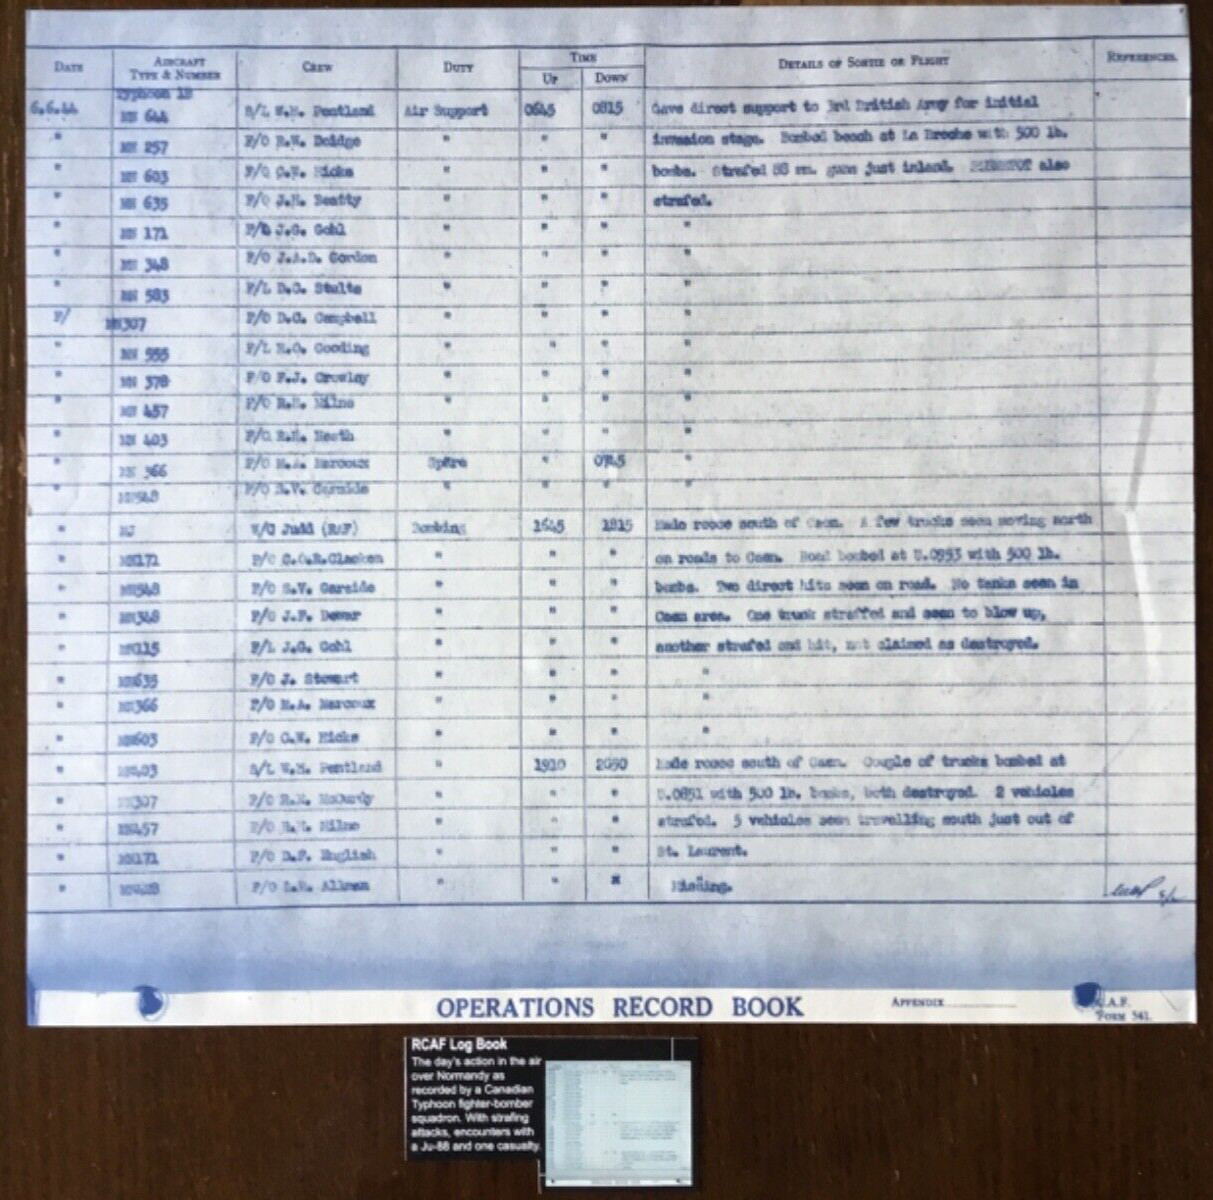 DATE AIRCRAFT TYPE & NUMBER CREW DUTY TIME UP DOWN DETAILS OF SORTIE OR FLIGHT REFERENCES.
Typhoon 1B
6.6.44 MN 644 S/L W.H. Pentland Air Support 0645 0815 Gave direct support to 3rd British Army for initial
" MN 257 F/O R.W. Doidge " " " invasion stage. Bombed beach at La Breche with 500 lb.
" MN 603 F/O C.W. Hicks " " " bombs. Strafed 88 mm. guns just inland. also
" MN 635 F/O J.H. Beatty " " " strafed.
" MN 171 F/L J.G. Gohl " " " "
" MN 348 F/O J.A.D. Gordon " " " "
" MN 583 F/L D.C. Stults " " " "
F/ MN307 F/O D.C. Campbell " " " "
" MN 555 F/L R.O. Gooding " " " "
" MN 378 F/O F.J. Crowley " " " "
" MN 457 F/O R.E. Milne " " " "
" MN 403 F/O R.N. " " " "
" MN 366 F/O M.A. Marcoux Spare " 0745 "
" MN548 F/O S.V. Garside " " " "
" MJ W/C Judd (RAF) Bombing 1645 1815 Made recce south of Caen. A few trucks seen moving north
" MN171 F/O C.O.R.Glasken " " " on roads to Caen. Road bombed at U.0953 with 500 lb.
" MN548 F/O S.V. Garside " " " bombs. Two direct hits seen on road. No tanks seen in
" MN348 F/O J.F. Dewar " " " Caen area. One truck straffed and seen to blow up,
" MN115 F/L J.G. Gohl " " " another strafed and hit, not claimed as destroyed.
" MN635 F/O J. Stewart " " " "
" MN366 F/O M.A. Marcoux " " " "
" MN603 F/O C.W. Hicks " " " "
" MN403 S/L W.H. Pentland " 1910 2050 Made recce south of Caen. Couple of trucks bombed at
" MN307 F/O R.K. McCurdy " " " U.0851 with 500 lb. bombs, both destroyed. 2 vehicles
" MN457 F/O R.E. Milne " " " strafed. 5 vehicles seen travelling south just out of
" MN171 F/O D.F. English " " " St. Laurent.
" MN428 F/O L.R. Allman " " " Missing.
OPERATIONS RECORD BOOK APPENDIX R.C.A.F.
FORM 541.
RCAF Log Book
The day's action in the air
over Normandy as
recorded by a Canadian
Typhoon fighter-bomber
squadron. With strafing
attacks, encounters with
a Ju-88 and one casualty.